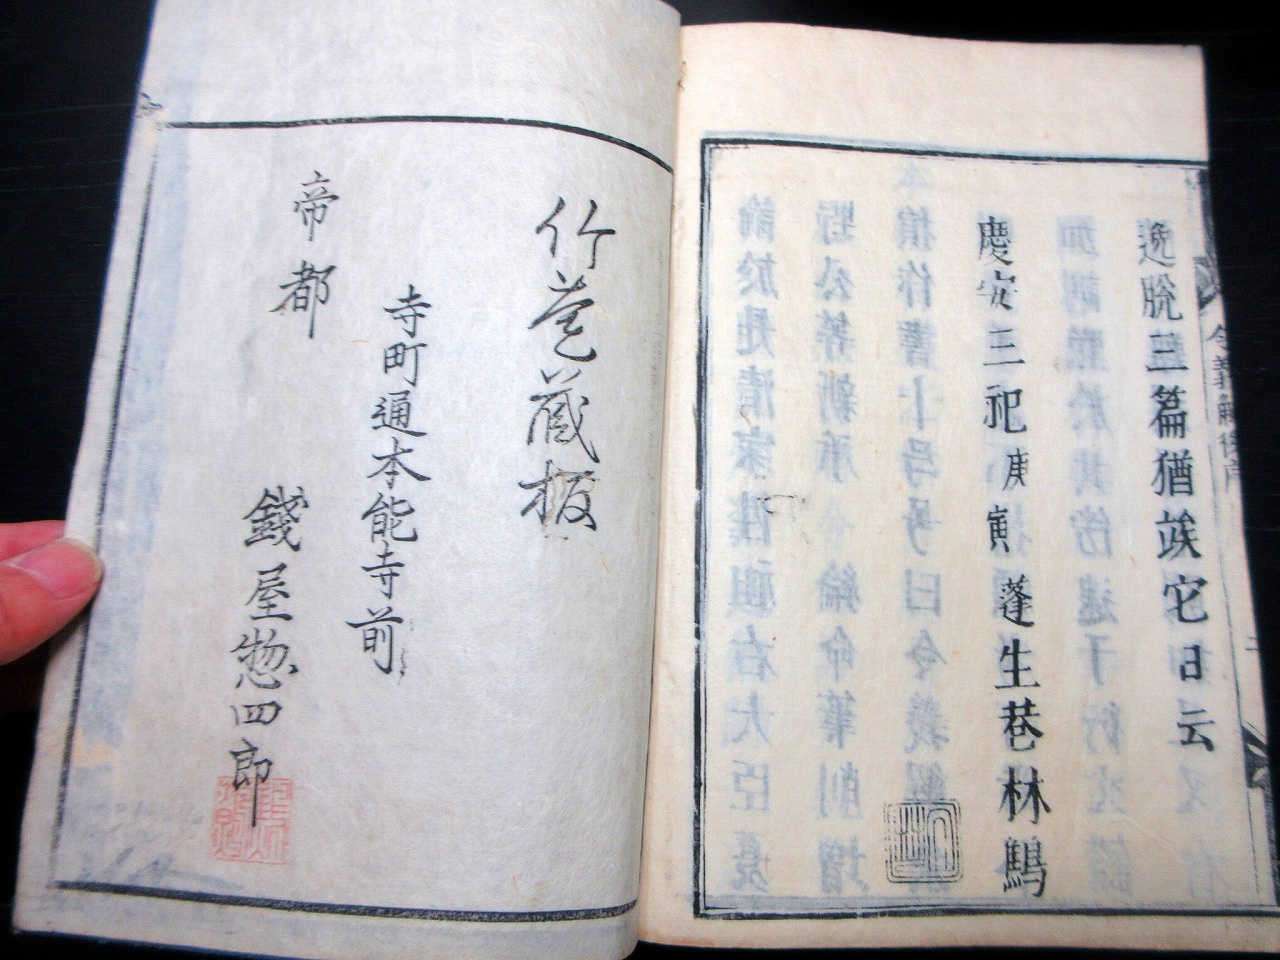 逸脱三篇猶竢它日云
慶安三祀庚寅 蓬生巷林鵞
令義解後序
竹巷蔵板
寺町通本能寺前
帝都 錢屋惣四郎